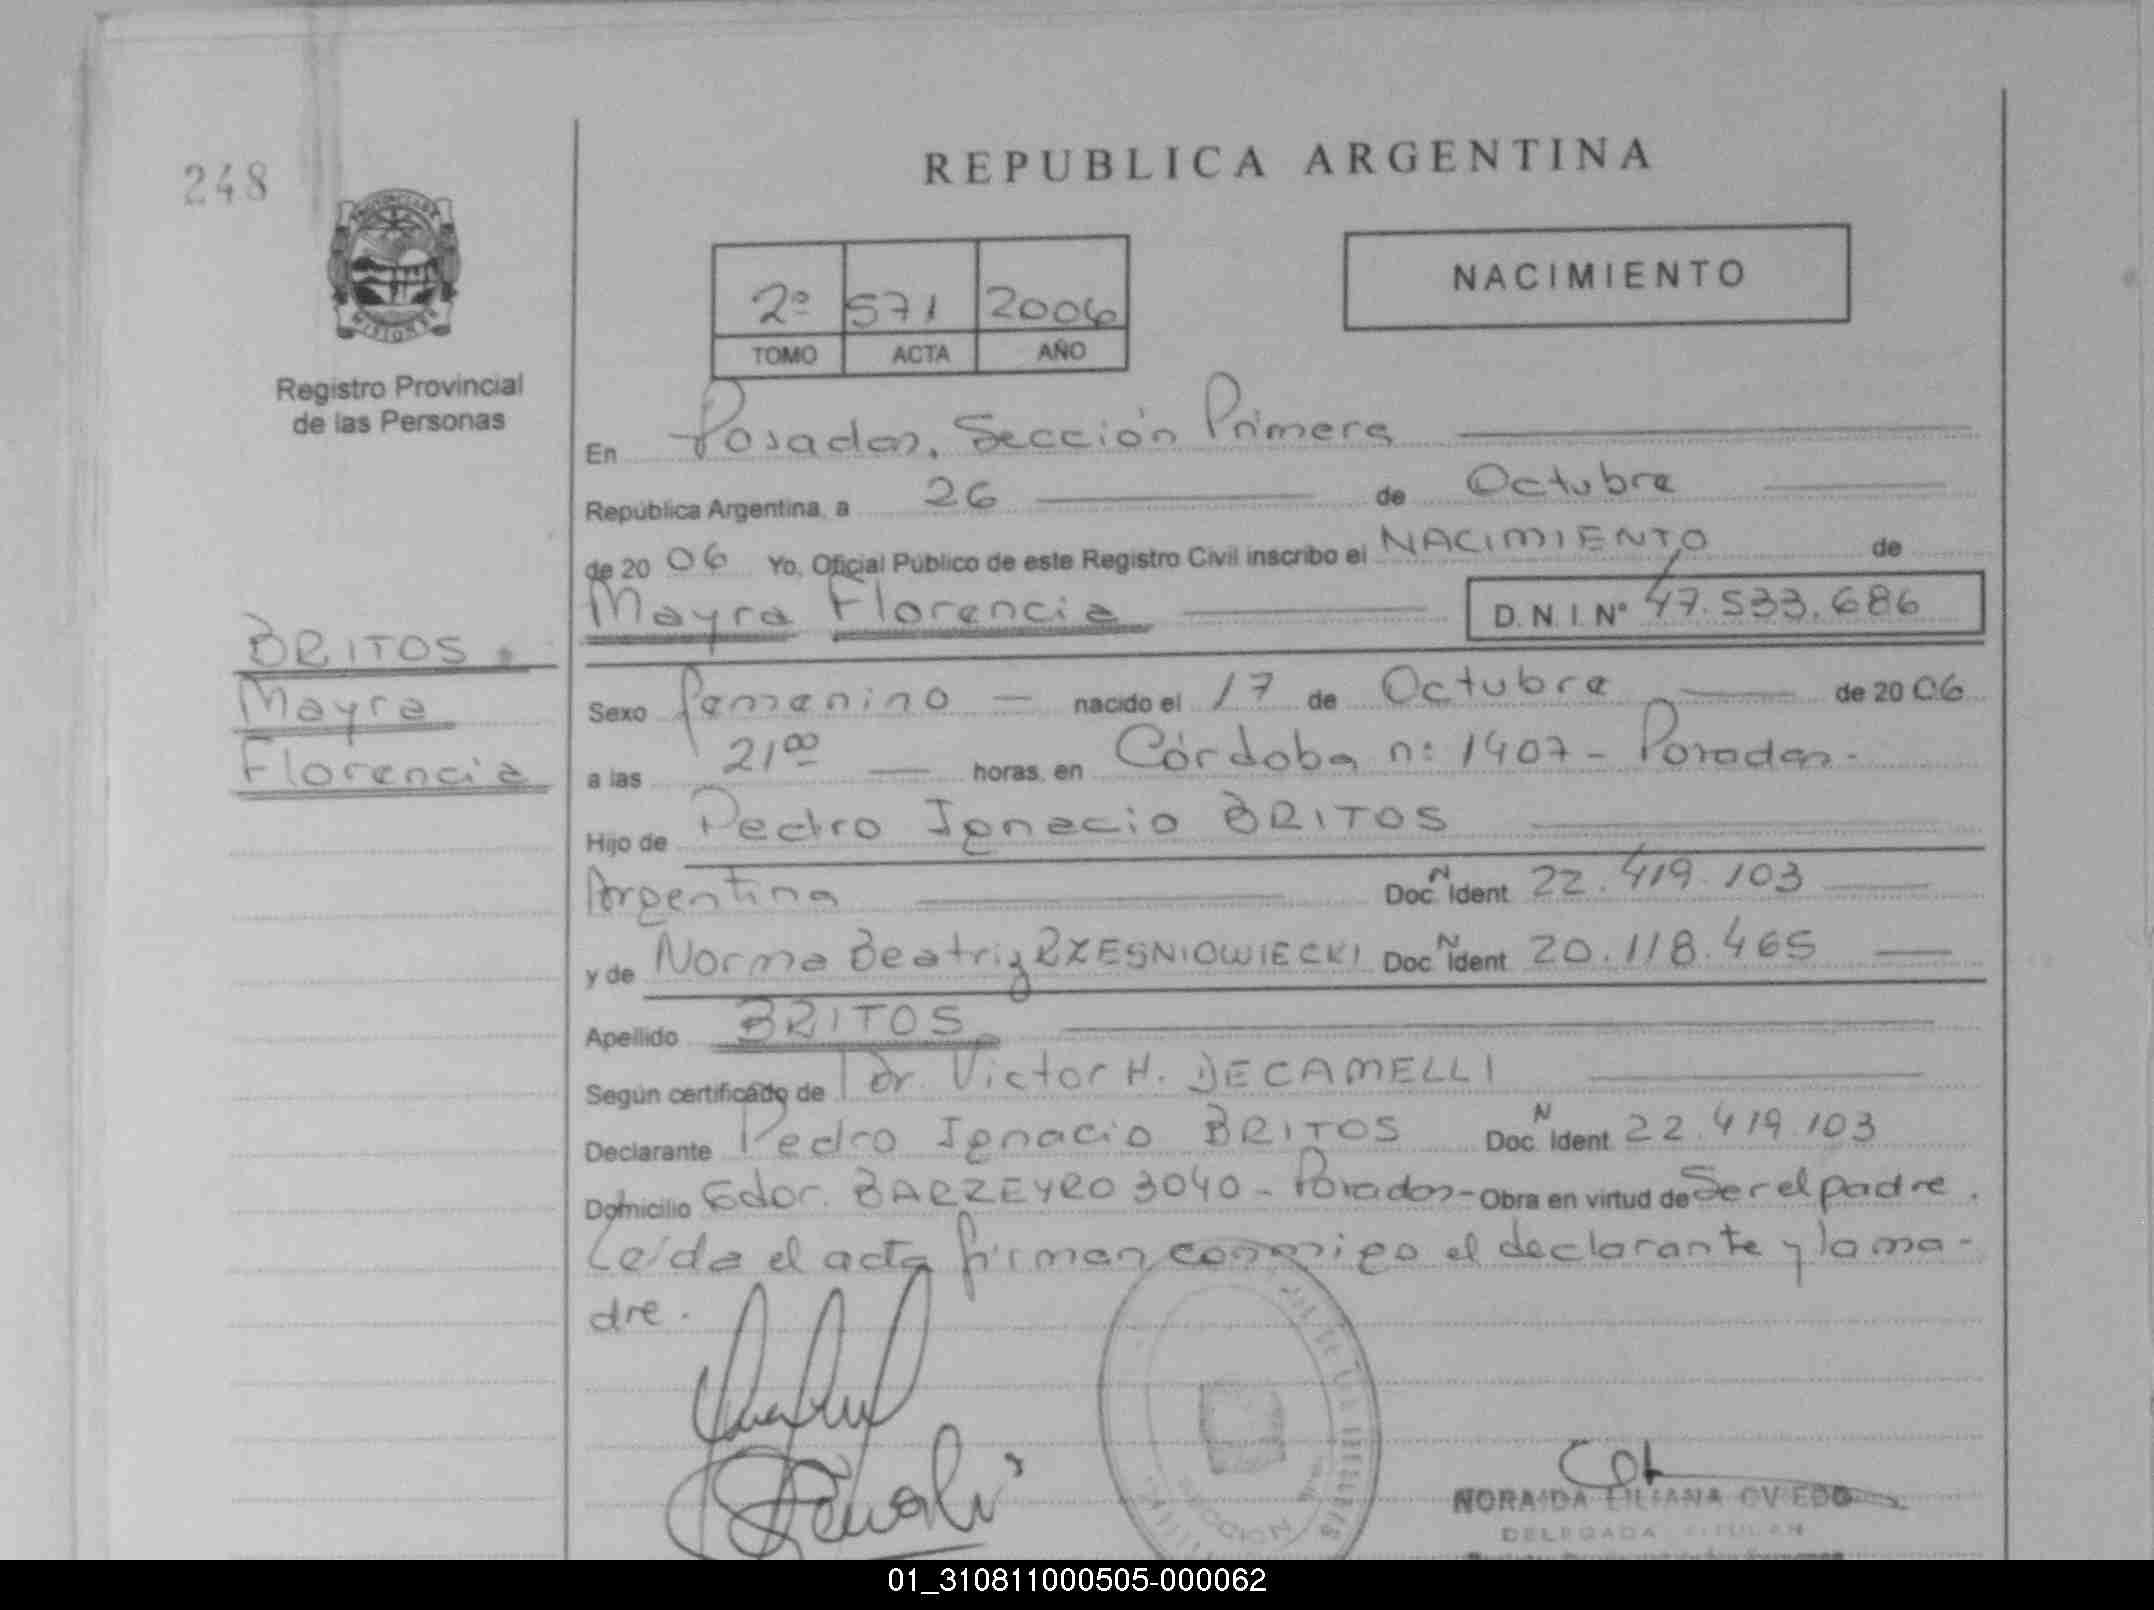 248
REPUBLICA ARGENTINA
NACIMIENTO
2º 571 2006
TOMO ACTA AÑO
Registro Provincial
de las Personas
En Posadas, Sección Primera
República Argentina, a 26 de Octubre
de 2006 Yo, Oficial Público de este Registro Civil inscribo el NACIMIENTO de
Mayra Florencia D.N.I. Nº 47.533.686
BRITOS
Mayra
Florencia
Sexo femenino nacido el 17 de Octubre de 2006
a las 21 00 horas, en Córdoba nº 1407 - Posadas -
Hijo de Pedro Ignacio BRITOS
Argentina Doc N Ident 22.419.103
y de Norma Beatriz RZESNIOWIECKI Doc N Ident 20.118.465
Apellido BRITOS
Según certificado de Dr. Victor H. DECAMELLI
Declarante Pedro Ignacio BRITOS Doc N Ident. 22.419.103
Domicilio Gdor. BARREYRO 3040 - Posadas - Obra en virtud de Ser el padre.
Leída el acta firman conmigo el declarante y la ma-
dre.
SECCION
NORAIDA LILIANA OVIEDO
DELEGADA TITULAR
01_310811000505-000062